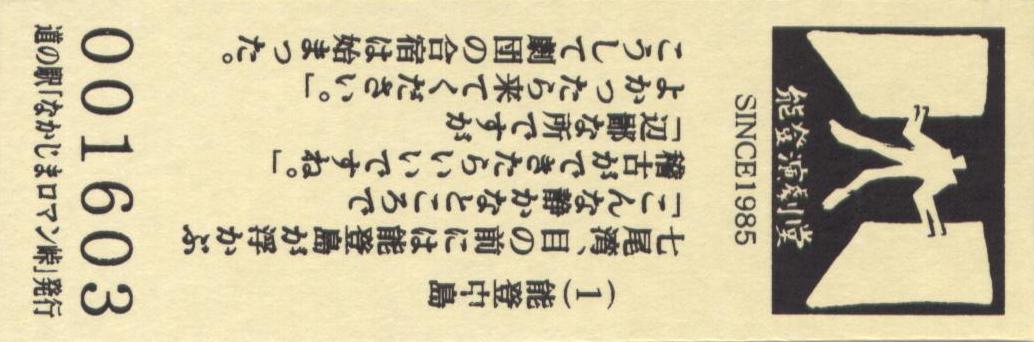 能登演劇堂
SINCE1985
(1)能登中島
七尾湾、目の前には能登島が浮かぶ
「こんな静かなところで
稽古ができたらいいですね。」
「辺鄙な所ですが
よかったら来てください。」
こうして劇団の合宿は始まった。
001603
道の駅「なかじまロマン峠」発行